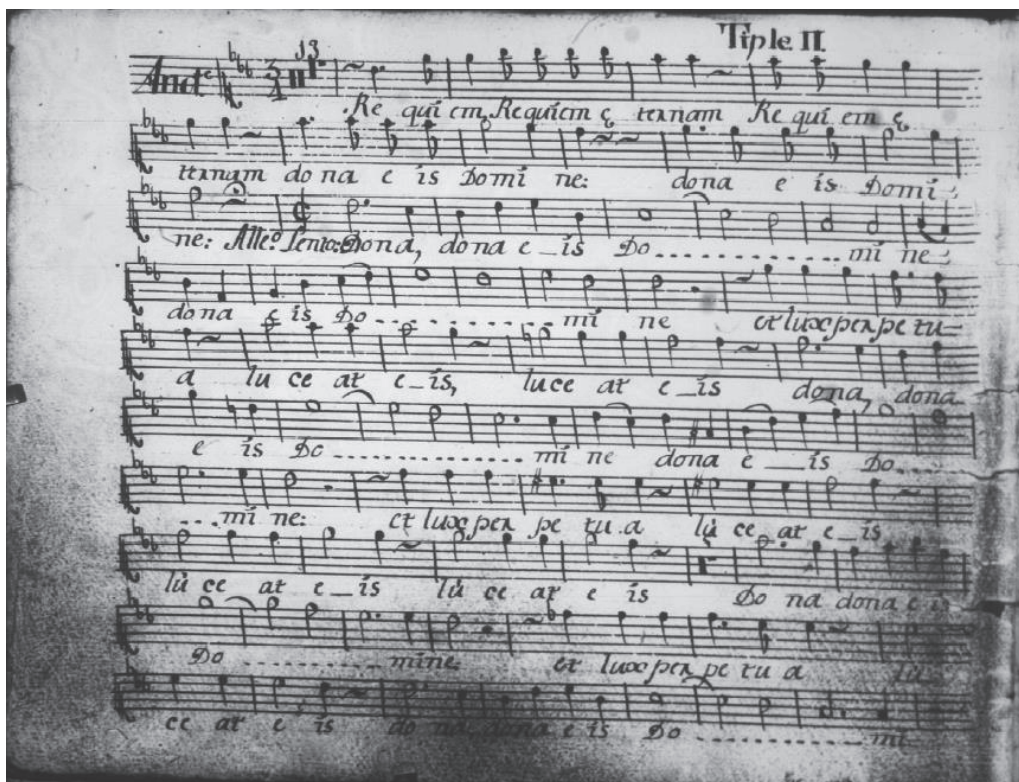 Tiple II
13
Andte 3/4
Re qui em Requiem ę ternam Re qui em ę
ternam do na e is Domi ne: dona e is Domi
ne: Allego Lento: Dona, dona e_is Do mi ne
dona e is Do mi ne et lux per pe tu
a lu ce at e_is, luce at e_is dona, dona
e is Do mi ne dona e_is Do
mi ne: et lux per pe tu a lú ce at e_is
lú ce at e_is lú ce at e is Do na dona e is
Do mine et lux per pe tu a lu
ce at e is do na dona e is Do mi